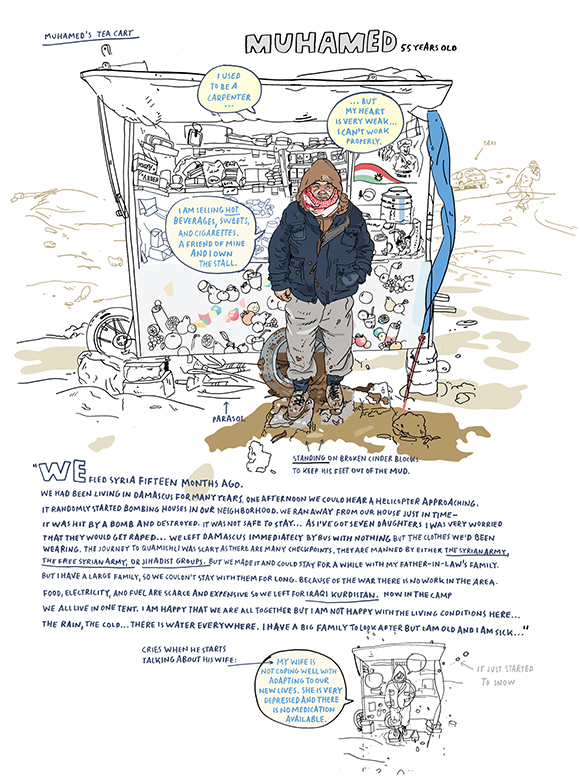 MUHAMED'S TEA CART
MUHAMED 55 YEARS OLD
I USED
TO BE A
CARPENTER
...
... BUT
MY HEART
IS VERY WEAK...
I CAN'T WORK
PROPERLY.
TAXI
I AM SELLING HOT
BEVERAGES, SWEETS,
AND CIGARETTES.
A FRIEND OF MINE
AND I OWN
THE STALL.
PARASOL
STANDING ON BROKEN CINDER BLOCKS
TO KEEP HIS FEET OUT OF THE MUD.
"WE FLED SYRIA FIFTEEN MONTHS AGO.
WE HAD BEEN LIVING IN DAMASCUS FOR MANY YEARS. ONE AFTERNOON WE COULD HEAR A HELICOPTER APPROACHING.
IT RANDOMLY STARTED BOMBING HOUSES IN OUR NEIGHBORHOOD. WE RAN AWAY FROM OUR HOUSE JUST IN TIME-
IT WAS HIT BY A BOMB AND DESTROYED. IT WAS NOT SAFE TO STAY... AS I'VE GOT SEVEN DAUGHTERS I WAS VERY WORRIED
THAT THEY WOULD GET RAPED... WE LEFT DAMASCUS IMMEDIATELY BY BUS WITH NOTHING BUT THE CLOTHES WE'D BEEN
WEARING. THE JOURNEY TO QUAMICHLI WAS SCARY AS THERE ARE MANY CHECKPOINTS. THEY ARE MANNED BY EITHER THE SYRIAN ARMY,
THE FREE SYRIAN ARMY, OR JIHADIST GROUPS. BUT WE MADE IT AND COULD STAY FOR A WHILE WITH MY FATHER-IN-LAW'S FAMILY.
BUT I HAVE A LARGE FAMILY, SO WE COULDN'T STAY WITH THEM FOR LONG. BECAUSE OF THE WAR THERE IS NO WORK IN THE AREA.
FOOD, ELECTRICITY, AND FUEL ARE SCARCE AND EXPENSIVE SO WE LEFT FOR IRAQI KURDISTAN. NOW IN THE CAMP
WE ALL LIVE IN ONE TENT. I AM HAPPY THAT WE ARE ALL TOGETHER BUT I AM NOT HAPPY WITH THE LIVING CONDITIONS HERE...
THE RAIN, THE COLD... THERE IS WATER EVERYWHERE. I HAVE A BIG FAMILY TO LOOK AFTER BUT I AM OLD AND I AM SICK..."
CRIES WHEN HE STARTS
TALKING ABOUT HIS WIFE:
MY WIFE IS
NOT COPING WELL WITH
ADAPTING TO OUR
NEW LIVES. SHE IS VERY
DEPRESSED AND THERE
IS NO MEDICATION
AVAILABLE.
IT JUST STARTED
TO SNOW